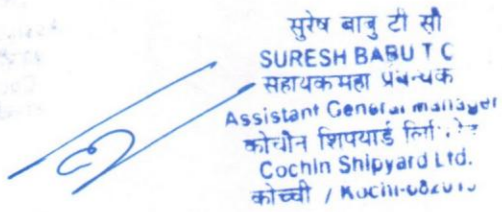 सुरेष बाबु टी सी
SURESH BABU T C
सहायक महा प्रबन्धक
Assistant General manager
कोचीन शिपयार्ड
Cochin Shipyard Ltd.
कोच्ची / Kochi-